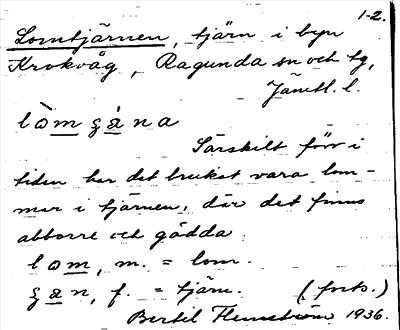 1-2.
Lomtjärnen, tjärn i byn
Krokvåg, Ragunda sn och tg,
Jämtl. l.
lòmgǻna
Särskilt förr i
tiden har det brukat vara lom-
mar i tjärnen, där det finns
abborre och gädda.
lom, m. = lom.
gan, f. = tjärn. (forts.)
Bertil Flemström 1936.